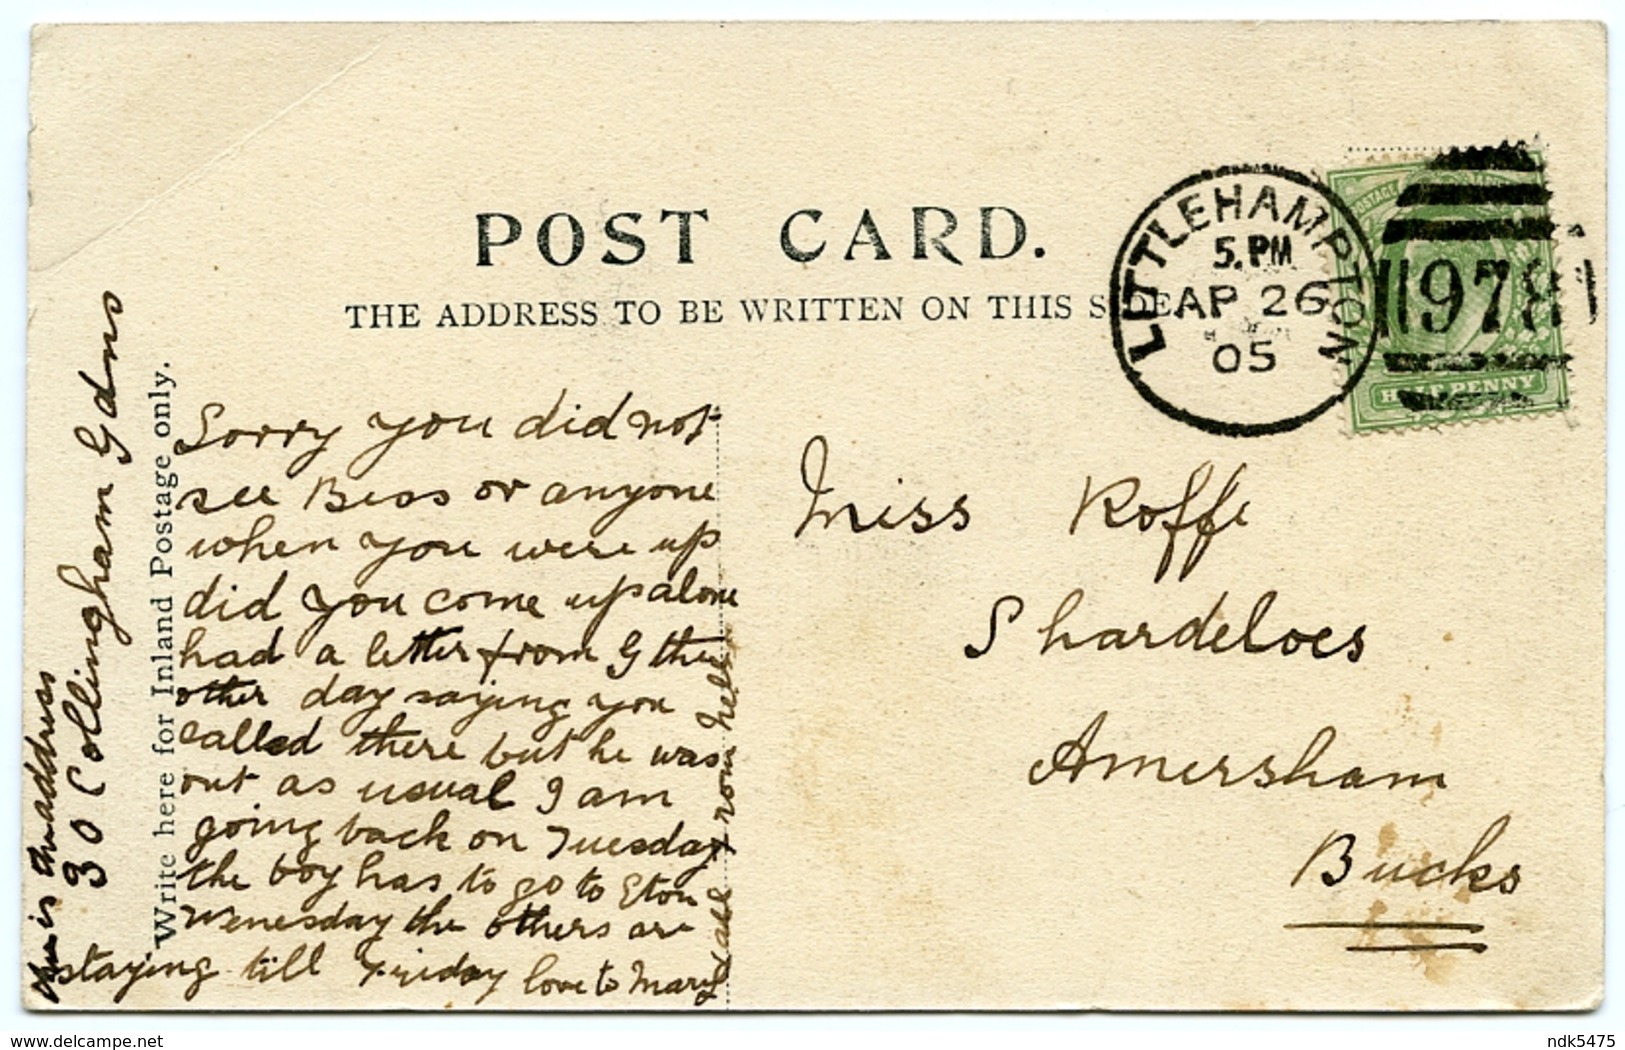 POST CARD.
THE ADDRESS TO BE WRITTEN ON THIS SIDE
LITTLEHAMPTON
5. PM
AP 26
05
978
POSTAGE
HALF PENNY
Write here for Inland Postage only.
Sorry you did not
see Bess or anyone
when you were up
did you come up alone
had a letter from G the
other day saying you
called there but he was
out as usual I am
going back on Tuesday
the boy has to go to Eton
Wenesday the others are
staying till Friday love to Mary
& all & now
this is the address
30 Collingham Gdns
Miss Roffe
Shardeloes
Amersham
Bucks
www.delcampe.net
ndk5475